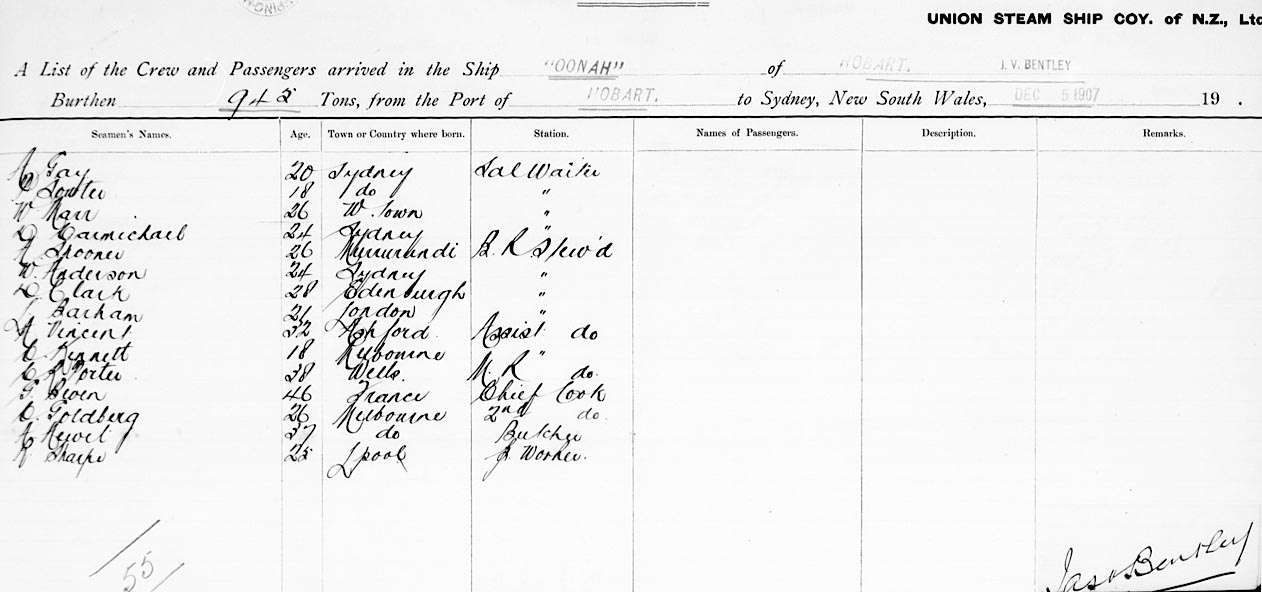 UNION STEAM SHIP COY. of N.Z., Ltd
A List of the Crew and Passengers arrived in the Ship "OONAH" of HOBART. J. V. BENTLEY
Burthen 945 Tons, from the Port of HOBART. to Sydney, New South Wales, DEC 5 1907 19 .
Seamen's Names. Age. Town or Country where born. Station. Names of Passengers. Description. Remarks.
Gay 20 Sydney Sal Waiter
18 do "
W Marr 26 W. Town "
D Carmichael 24 Sydney "
A Spooner 26 Murrurundi B. R Stew'd
W. Anderson 24 Sydney "
D Clark 28 Edenburgh "
Barham 21 London "
A Vincent 32 Ashford Assist do
C Kennett 18 Melbourne "
C R Porter 38 Wells. M. R do.
G. Bowen 46 France Chief Cook
C. Goldberg 26 Melbourne 2nd do.
A Hewet 37 do Butcher
R. Sharpe 25 Lpool
55
Jas V Bentley